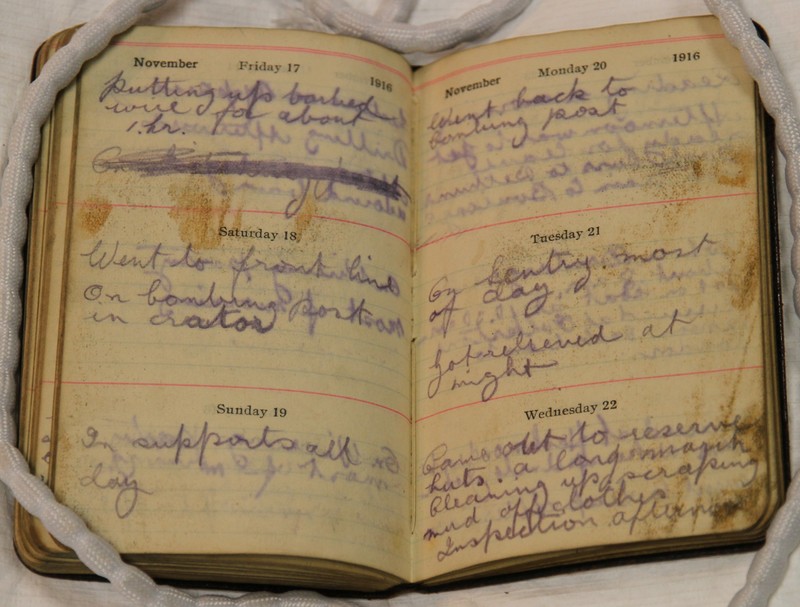 November Friday 17 1916
Putting up barbed
wire for about
1 hr.
On
Saturday 18
Went to front line
On bombing post
in crator
Sunday 19
In supports all
day
November Monday 20 1916
Went back to
bombing post
Tuesday 21
On Sentry most
of day
Got relieved at
night
Wednesday 22
Came out to reserve
huts a long march
Cleaning up scraping
mud off clothes
Inspection afternoon